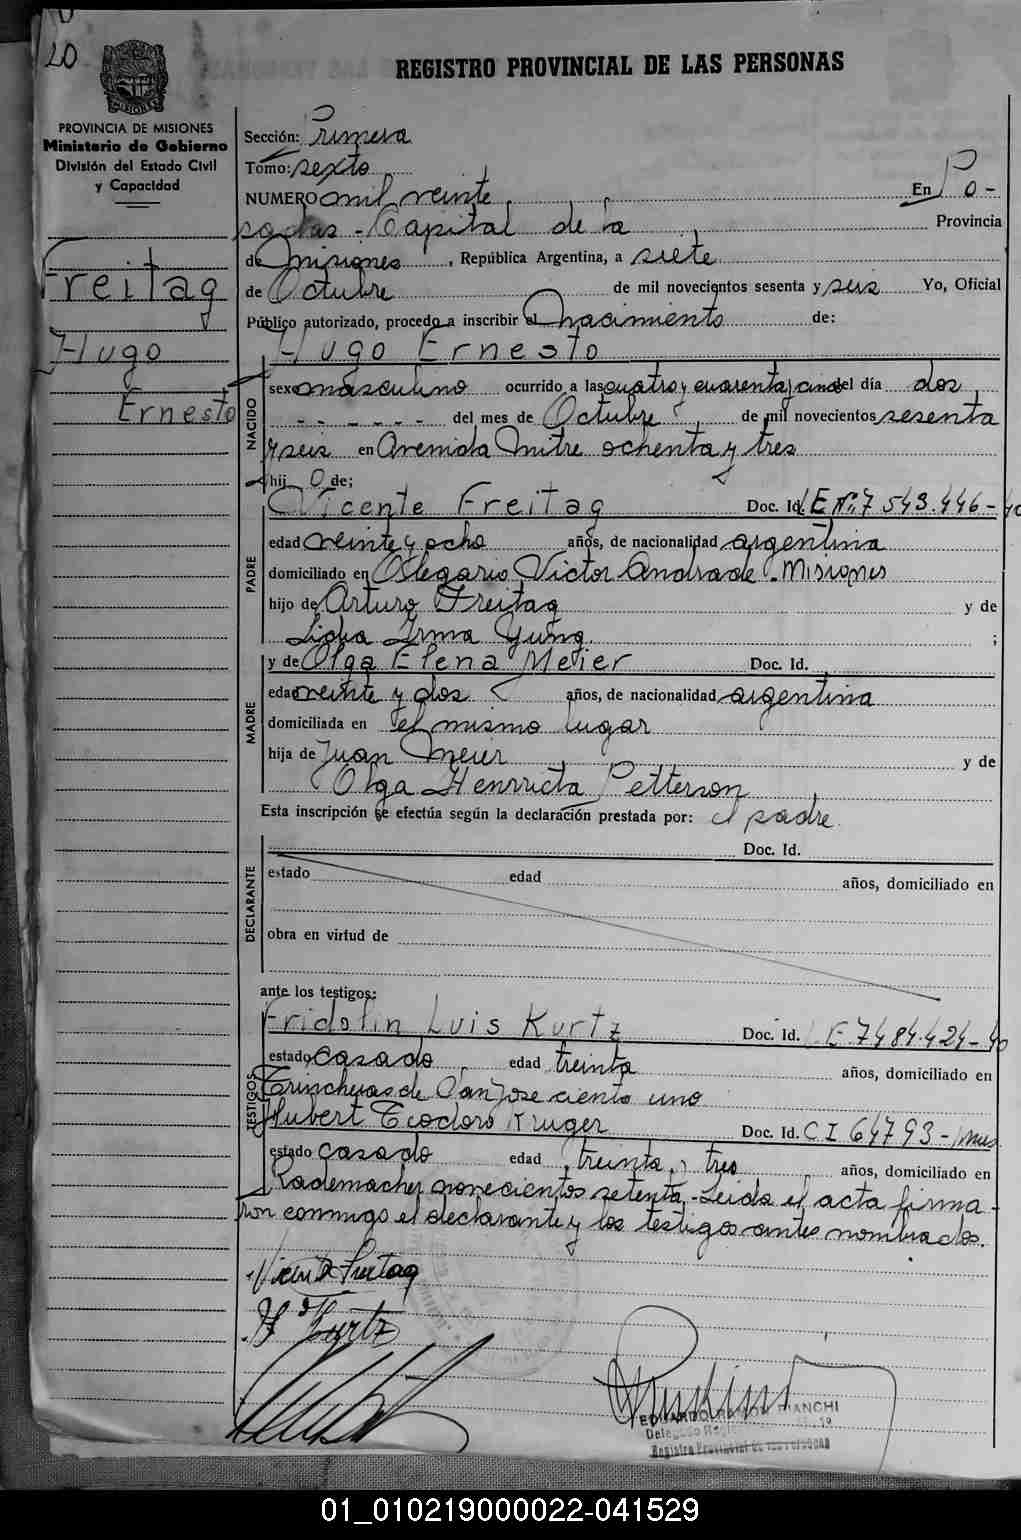 20
REGISTRO PROVINCIAL DE LAS PERSONAS
MISIONES
PROVINCIA DE MISIONES
Ministerio de Gobierno
División del Estado Civil
y Capacidad
Freitag
Hugo
Ernesto
Sección: Primera
Tomo: sexto
NUMERO mil veinte En Po-
sadas - Capital de la Provincia
de Misiones, República Argentina, a siete
de Octubre de mil novecientos sesenta y seis Yo, Oficial
Público autorizado, procedo a inscribir el Nacimiento de:
Hugo Ernesto
NACIDO
sexo masculino ocurrido a las cuatro y cuarenta y cinco del día dos
- - - - - - del mes de Octubre de mil novecientos sesenta
y seis en Avenida Mitre ochenta y tres
hij o de;
PADRE
Vicente Freitag Doc. Id. L E Nº 7 543.446-
edad veinte y ocho años, de nacionalidad argentina
domiciliado en Olegario Victor Andrade - Misiones
hijo de Arturo Freitag y de
Lidia Irma Yung ;
MADRE
y de Olga Elena Meier Doc. Id.
edad veinte y dos años, de nacionalidad argentina
domiciliada en el mismo lugar
hija de Juan Meier y de
Olga Henrricta Petterson
Esta inscripción se efectúa según la declaración prestada por: el padre.
DECLARANTE
Doc. Id.
estado edad años, domiciliado en
obra en virtud de
ante los testigos:
TESTIGOS
Fridolin Luis Kurtz Doc. Id. L E 7484.424-
estado casado edad treinta años, domiciliado en
Trincheras de San Jose ciento uno
Hubert Teodoro Kruger Doc. Id. C I 64793-
estado casado edad treinta y tres años, domiciliado en
Rademacher novecientos setenta - Leida el acta firma-
ron conmigo el declarante y los testigos antes nombrados.
Vicente Freitag
Kurtz
EDUARDO RAMON BIANCHI
Registro Provincial de las Personas
01_010219000022-041529